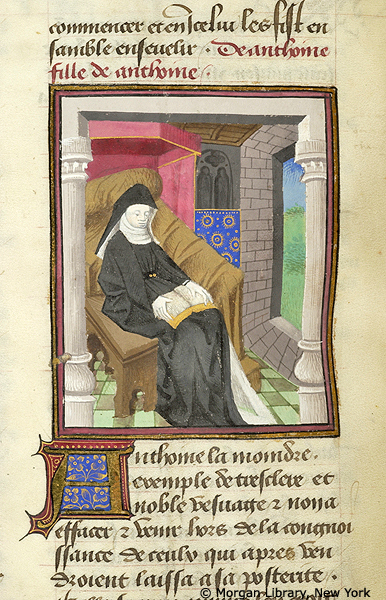 commencer et en celui les fist en
samble ensevelir. De anthoine
fille de anthoine.
Anthoine la mondre.
exemple de tresclere et
noble vesuage et non a
effacer et venir hors de la congnoi
ssance de ceulx qui apres ven
droient laissa a sa posterite.
© Morgan Library, New York